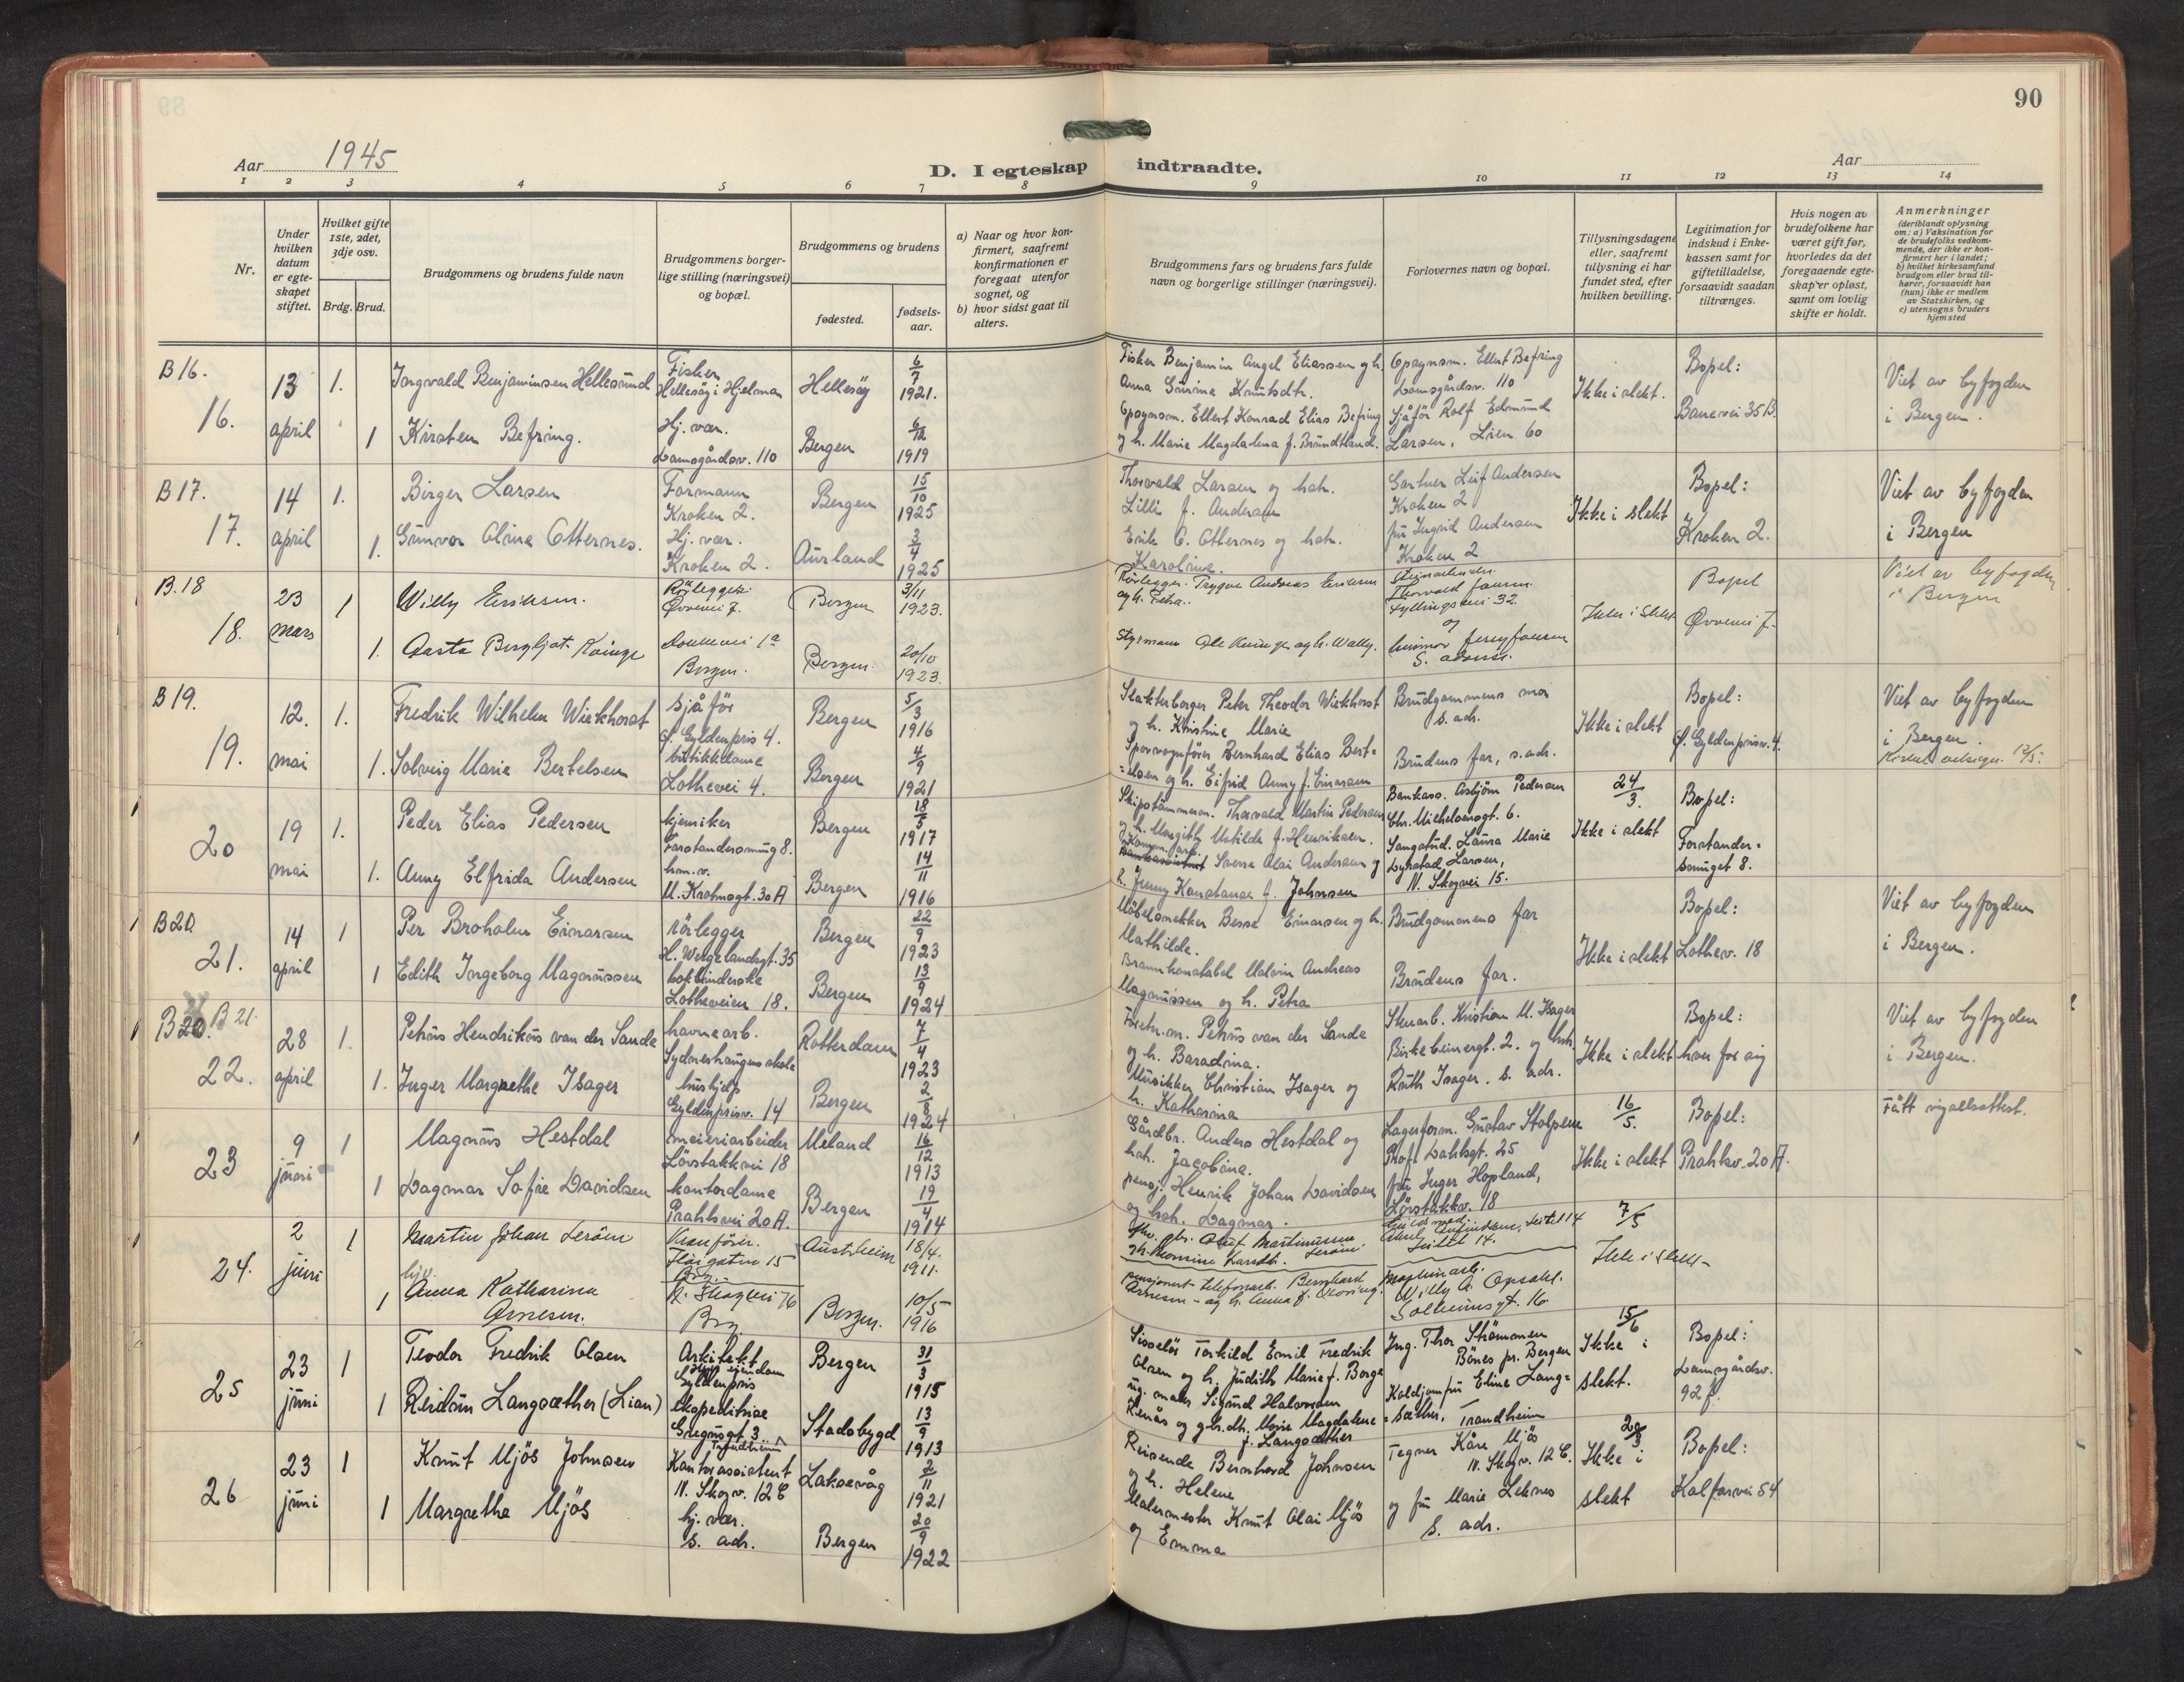 90
Aar 1945
D. I egteskap indtraadte.
Aar
1 2 3 4 5 6 7 8 9 10 11 12 13 14
Nr.
Under hvilken datum er egteskapet stiftet.
Hvilket gifte 1ste, 2det, 3dje osv.
Brdg. Brud.
Brudgommens og brudens fulde navn
Brudgommens borgerlige stilling (næringsvei) og bopæl.
Brudgommens og brudens
fødested.
fødselsaar.
a) Naar og hvor konfirmert, saafremt konfirmationen er foregaat utenfor sognet, og
b) hvor sidst gaat til alters.
Brudgommens fars og brudens fars fulde navn og borgerlige stillinger (næringsvei).
Forlovernes navn og bopæl.
Tillysningsdagene eller, saafremt tillysning ei har fundet sted, efter hvilken bevilling.
Legitimation for indskud i Enkekassen samt for giftetilladelse, forsaavidt saadan tiltrænges.
Hvis nogen av brudefolkene har været gift før, hvorledes da det foregaaende egteskap er opløst, samt om lovlig skifte er holdt.
Anmerkninger
(deriblandt oplysning om: a) Vaksination for de brudefolks vedkommende, der ikke er konfirmert her i landet; b) hvilket kirkesamfund brudgom eller brud tilhører, forsaavidt han (hun) ikke er medlem av Statskirken, og c) utensogns bruders hjemsted
B16.
16.
13 april
1.
Ingvald Benjaminsen Hellesund
Fisker
Hellesøy i Hjelma
Hellesøy
6/7 1921.
Fisker Benjamin Angel Eliassen og h.
Anna Gurine Knutsdtr.
Opsynsm. Ellert Befring
Damsgårdsv. 110
Ikke i slekt.
Bopel:
Banevei 35 B.
Viet av byfogden
i Bergen.
1
Kirsten Befring.
Hj. vær.
Damsgårdsv. 110
Bergen
6/12 1919
Opsynsm. Ellert Konrad Elias Befring
og h. Marie Magdalena f. Brundtland.
Sjåfør Rolf Edmund
Larsen, Lien 60
B17.
17.
14 april
1.
Birger Larsen
Formann
Kroken 2.
Bergen
15/10 1925
Thorvald Larsen og hstr.
Lilli f. Andersen
Gartner Leif Andersen
Kroken 2
Ikke i slekt
Bopel:
Kroken 2.
Viet av byfogden
i Bergen
1.
Gunvor Oline Otternes.
Hj. vær.
Kroken 2.
Aurland
3/4 1925
Erik O. Otternes og hstr.
Karoline.
fru Ingrid Andersen
Kroken 2
B.18
18.
23 mars
1
Willy Eriksen.
Rørlegger
Øvrevei 7.
Bergen
3/11 1923.
Rørlegger. Trygve Andreas Eriksen
og h. Petra.
Thorvald Jansen.
Gyldingsvei 32
og
Ikke i slekt
Bopel
Øvrevei 7.
Viet av byfogden
i Bergen
1.
Aasta Bergljot Kvinge
1a
Bergen.
Bergen.
20/10 1923.
Styrmann Ole Kvinge og h. Wally.
Jenny Jansen
S. adresse.
B19.
19.
12. mai
1.
Fredrik Wilhelm Wiekhorst
sjåfør
Ø. Gyldenpris 4.
Bergen
5/3 1916
Slakterborger Peter Theodor Wiekhorst
og h. Kristine Marie
Brudgommens mor
s. adr.
Ikke i slekt
Bopel:
Ø. Gyldenprisv. 4.
Viet av byfogden
i Bergen.
Kirkel. velsign. 12/5.
1.
Solveig Marie Bertelsen
butikkdame
Lothevei 4.
Bergen
4/9 1921
Sporvognfører Bernhard Elias Bert=
=elsen og h. Eifrid Anny f. Einarsen
Brudens far, s. adr.
20
19 mai
1.
Peder Elias Pedersen
kjemiker
Forstandersmug 8.
Bergen
18/5 1917
Skipstømmerm. Thorvald Martin Pedersen
og h. Margith Matilde f. Henriksen.
Bankass. Asbjørn Pedersen
Chr. Michelsensgt. 6.
24/3.
Ikke i slekt
Bopel:
Forstander=
smuget 8.
1.
Anny Elfrida Andersen
hm. v.
M. Krohnsgt. 30 A
Bergen
14/11 1916
Sverre Olai Andersen og
h. Jenny Konstanse f. Johnsen
Sangstud. Laura Marie
Dyrstad Larsen,
N. Skogvei 15.
B20.
21.
14 april
1
Per Broholm Einarsen
rørlegger
H. Wergelandsgt. 35
Bergen
22/9 1923
Møbelsnekker Besse Einarsen og h.
Mathilde.
Brudgommens far
Ikke i slekt
Bopel:
Lothev. 18
Viet av byfogden
i Bergen.
1
Edith Ingeborg Magnussen
bokbinderske
Lotheveien 18.
Bergen
13/9 1924
Brannkonstabel Malvin Andreas
Magnussen og h. Petra
Brudens far.
B20. B21.
22.
28 april
1.
Petrus Hendrikus van der Sande
havnearb.
Sydneshaugen skole
Rotterdam
7/4 1923
Petrus van der Sande
og h. Baradina.
Stuearb. Kristian M. Isager
Birkebeinergt. 2. og hstr.
Ikke i slekt
Bopel:
hver for sig
Viet av byfogden
i Bergen.
1.
Inger Margrethe Isager
hushjelp
Gyldenprisv. 14
Bergen
2/8 1924
Musikker Christian Isager og
h. Katharina
Ruth Isager. s. adr.
Fått vigselsattest.
23
9 juni
1
Magnus Hestdal
meieriarbeider
Løvstakkvei 18
Meland
16/12 1913
Gårdbr. Anders Hestdal og
hstr. Jacobine.
Lagerform. Gustav Stolpen
Prof. Dahlsgt. 25
16/5.
Ikke i slekt
Bopel:
Prahlsv. 20 A.
1
Dagmar Sofie Davidsen
kontordame
Prahlsvei 20 A.
Bergen
19/4 1914
pensj. Henrik Johan Davidsen
og hstr. Dagmar.
fru Inger Hopland,
Løvstakkv. 18
24.
2 juni
1
Martin Johan Lerøin
Kranfører.
15
Brg.
Austrheim
18/4. 1911.
Oluf Martinussen
Lerøin
14
7/5
Ikke i slekt
1
Anna Katharina
Arnesen.
N. Skogvei 76
Brg
Bergen.
10/5 1916
pensjonert telefonarb. Bernhard
Arnesen - og h. Anna f.
Maskinarb.
Willy A. Opsahl.
Solheimsgt. 16
25
23 juni
1
Teodor Fredrik Olsen
Arkitekt
Gyldenpris
Bergen
31/3 1915
Torkild Emil Fredrik
Olsen og h. Judith Marie f. Borge
Ing. Thor Strømmen
Bønes pr. Bergen
15/6
Ikke i
slekt.
Bopel:
Damsgårdsv.
92 f.
1
Reidun Langsæther (Lian)
ekspeditrise
Gregusgt. 3
Trondheim
Stadsbygd
13/9 1913
Sigurd Halvorsen
Renås og Marie Magdalene
f. Langsæther
Koldjomfru Eline Lang=
=sæther, Trondheim
26
23 juni
1
Knut Mjøs Johnsen
Kontorassistent
N. Skogv. 12 C
Laksevåg
2/11 1921
Reisende Bernhard Johnsen
og h. Helene
Tegner Kåre Mjøs
N. Skogv. 12 C.
Ikke i
slekt
Bopel:
Kalfarvei 54
1
Margrethe Mjøs
hj. vær.
s. adr.
Bergen
20/9 1922
Malermester Knut Olai Mjøs
og Emma
og fru Marie Leknes
s. adr.